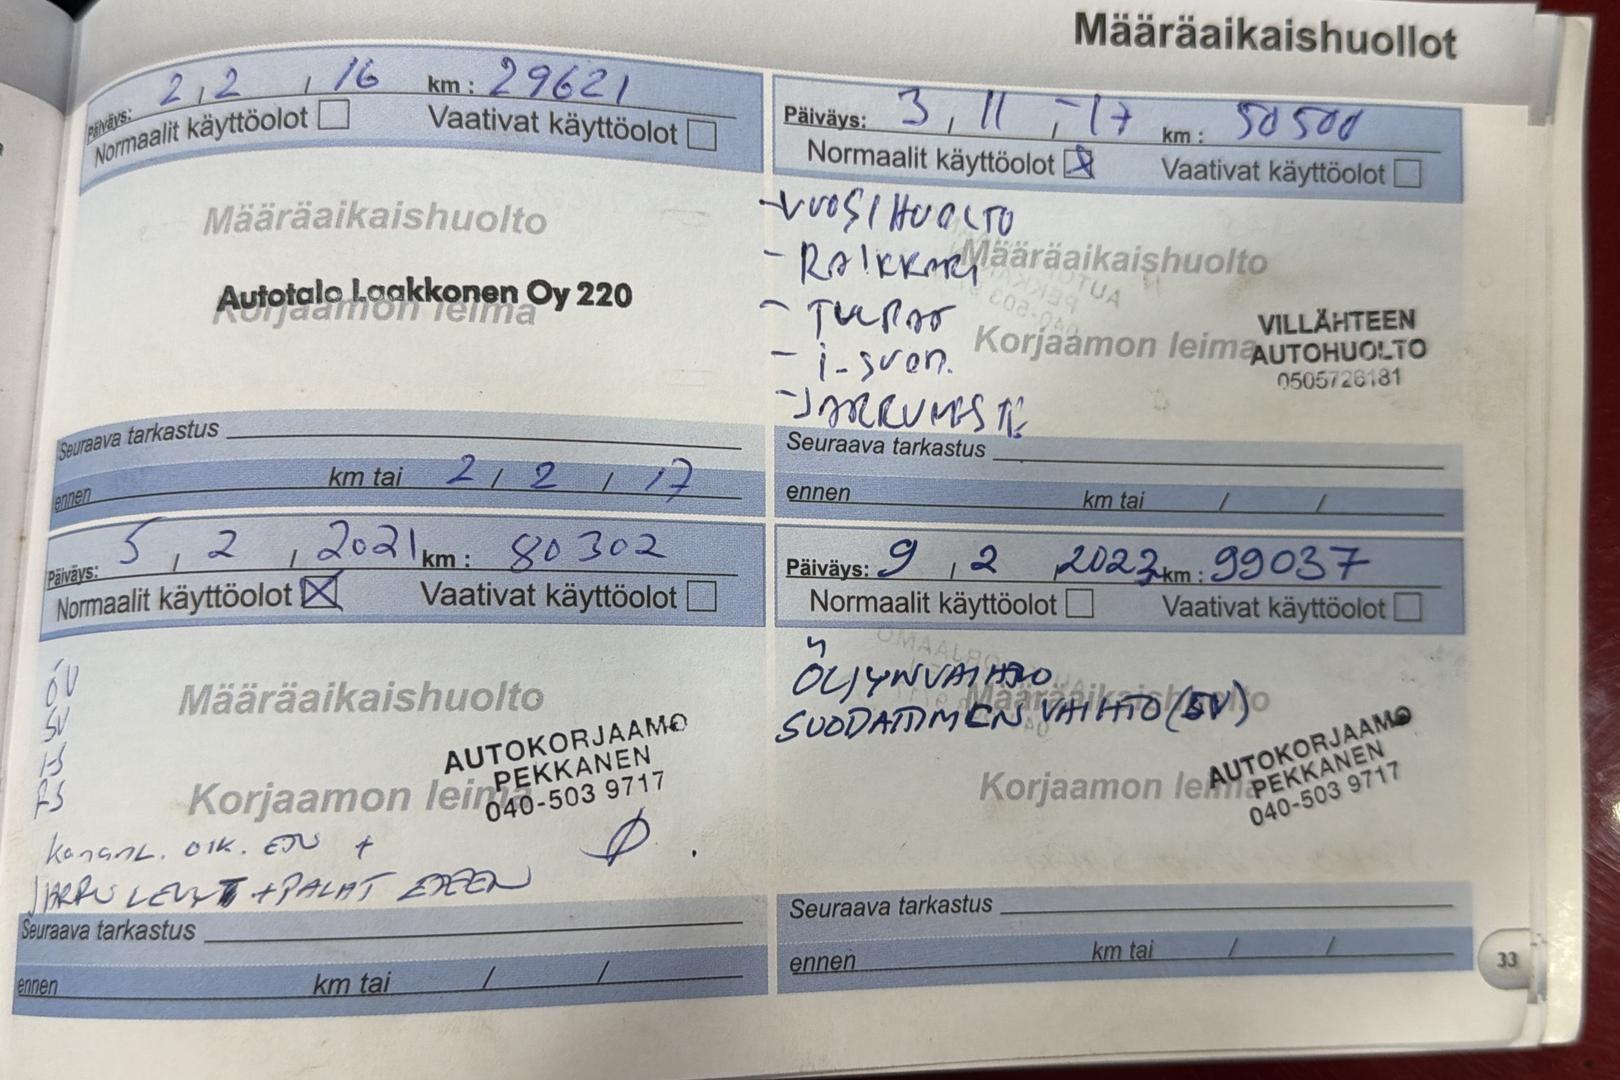 Määräaikaishuollot
Päiväys: 2, 2, 16 km: 29621
Normaalit käyttöolot Vaativat käyttöolot
Määräaikaishuolto
Autotalo Laakkonen Oy 220
Korjaamon leima
Seuraava tarkastus
ennen km tai 2 / 2 / 17
Päiväys: 3, 11, -17 km: 50500
Normaalit käyttöolot Vaativat käyttöolot
-VUOSIHUOLTO
- RAIKKARI
Määräaikaishuolto
- TULPAT
- i-suod.
Korjaamon leima
VILLÄHTEEN
AUTOHUOLTO
0505726181
-JARRUNESTE
Seuraava tarkastus
ennen km tai / /
Päiväys: 5, 2, 2021 km: 80302
Normaalit käyttöolot Vaativat käyttöolot
ÖV
SV
IS
RS
Määräaikaishuolto
AUTOKORJAAMO
PEKKANEN
040-503 9717
Korjaamon leima
OIK. +
JARRULEVYT + PALAT EDEEN
Seuraava tarkastus
ennen km tai / /
Päiväys: 9, 2, 2023 km: 99037
Normaalit käyttöolot Vaativat käyttöolot
ÖLJYNVAIHTO
Määräaikaishuolto
SUODATTIMEN VAIHTO (SV)
Korjaamon leima
AUTOKORJAAMO
PEKKANEN
040-503 9717
Seuraava tarkastus
ennen km tai / /
33